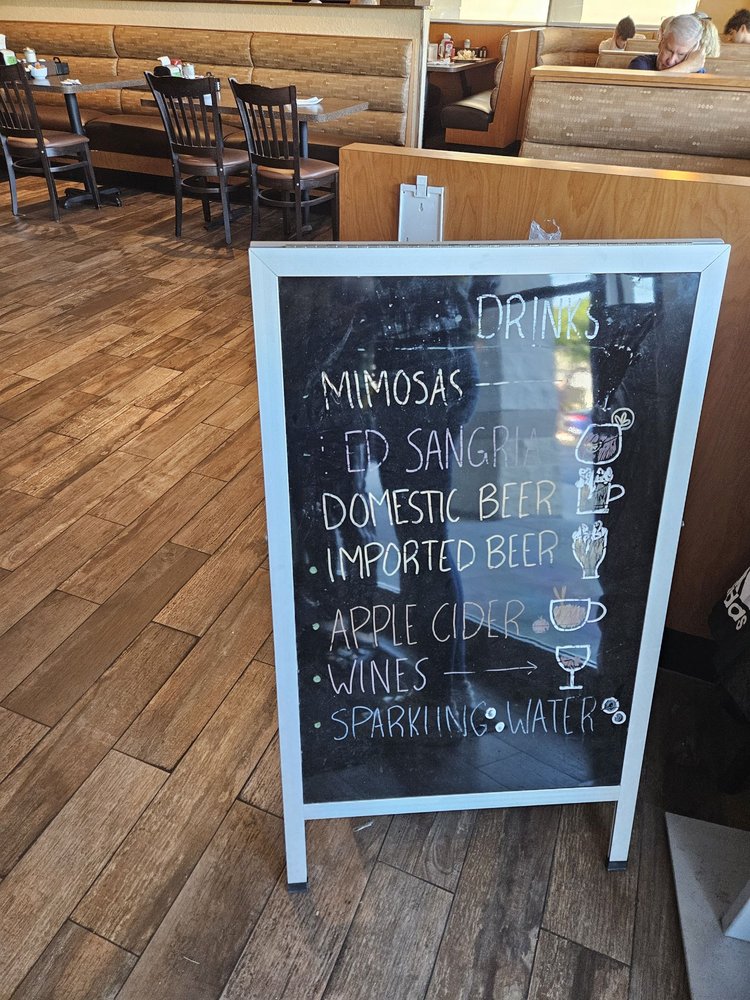 DRINKS
MIMOSAS
ED SANGRIA
DOMESTIC BEER
IMPORTED BEER
APPLE CIDER
WINES
SPARKLING WATER